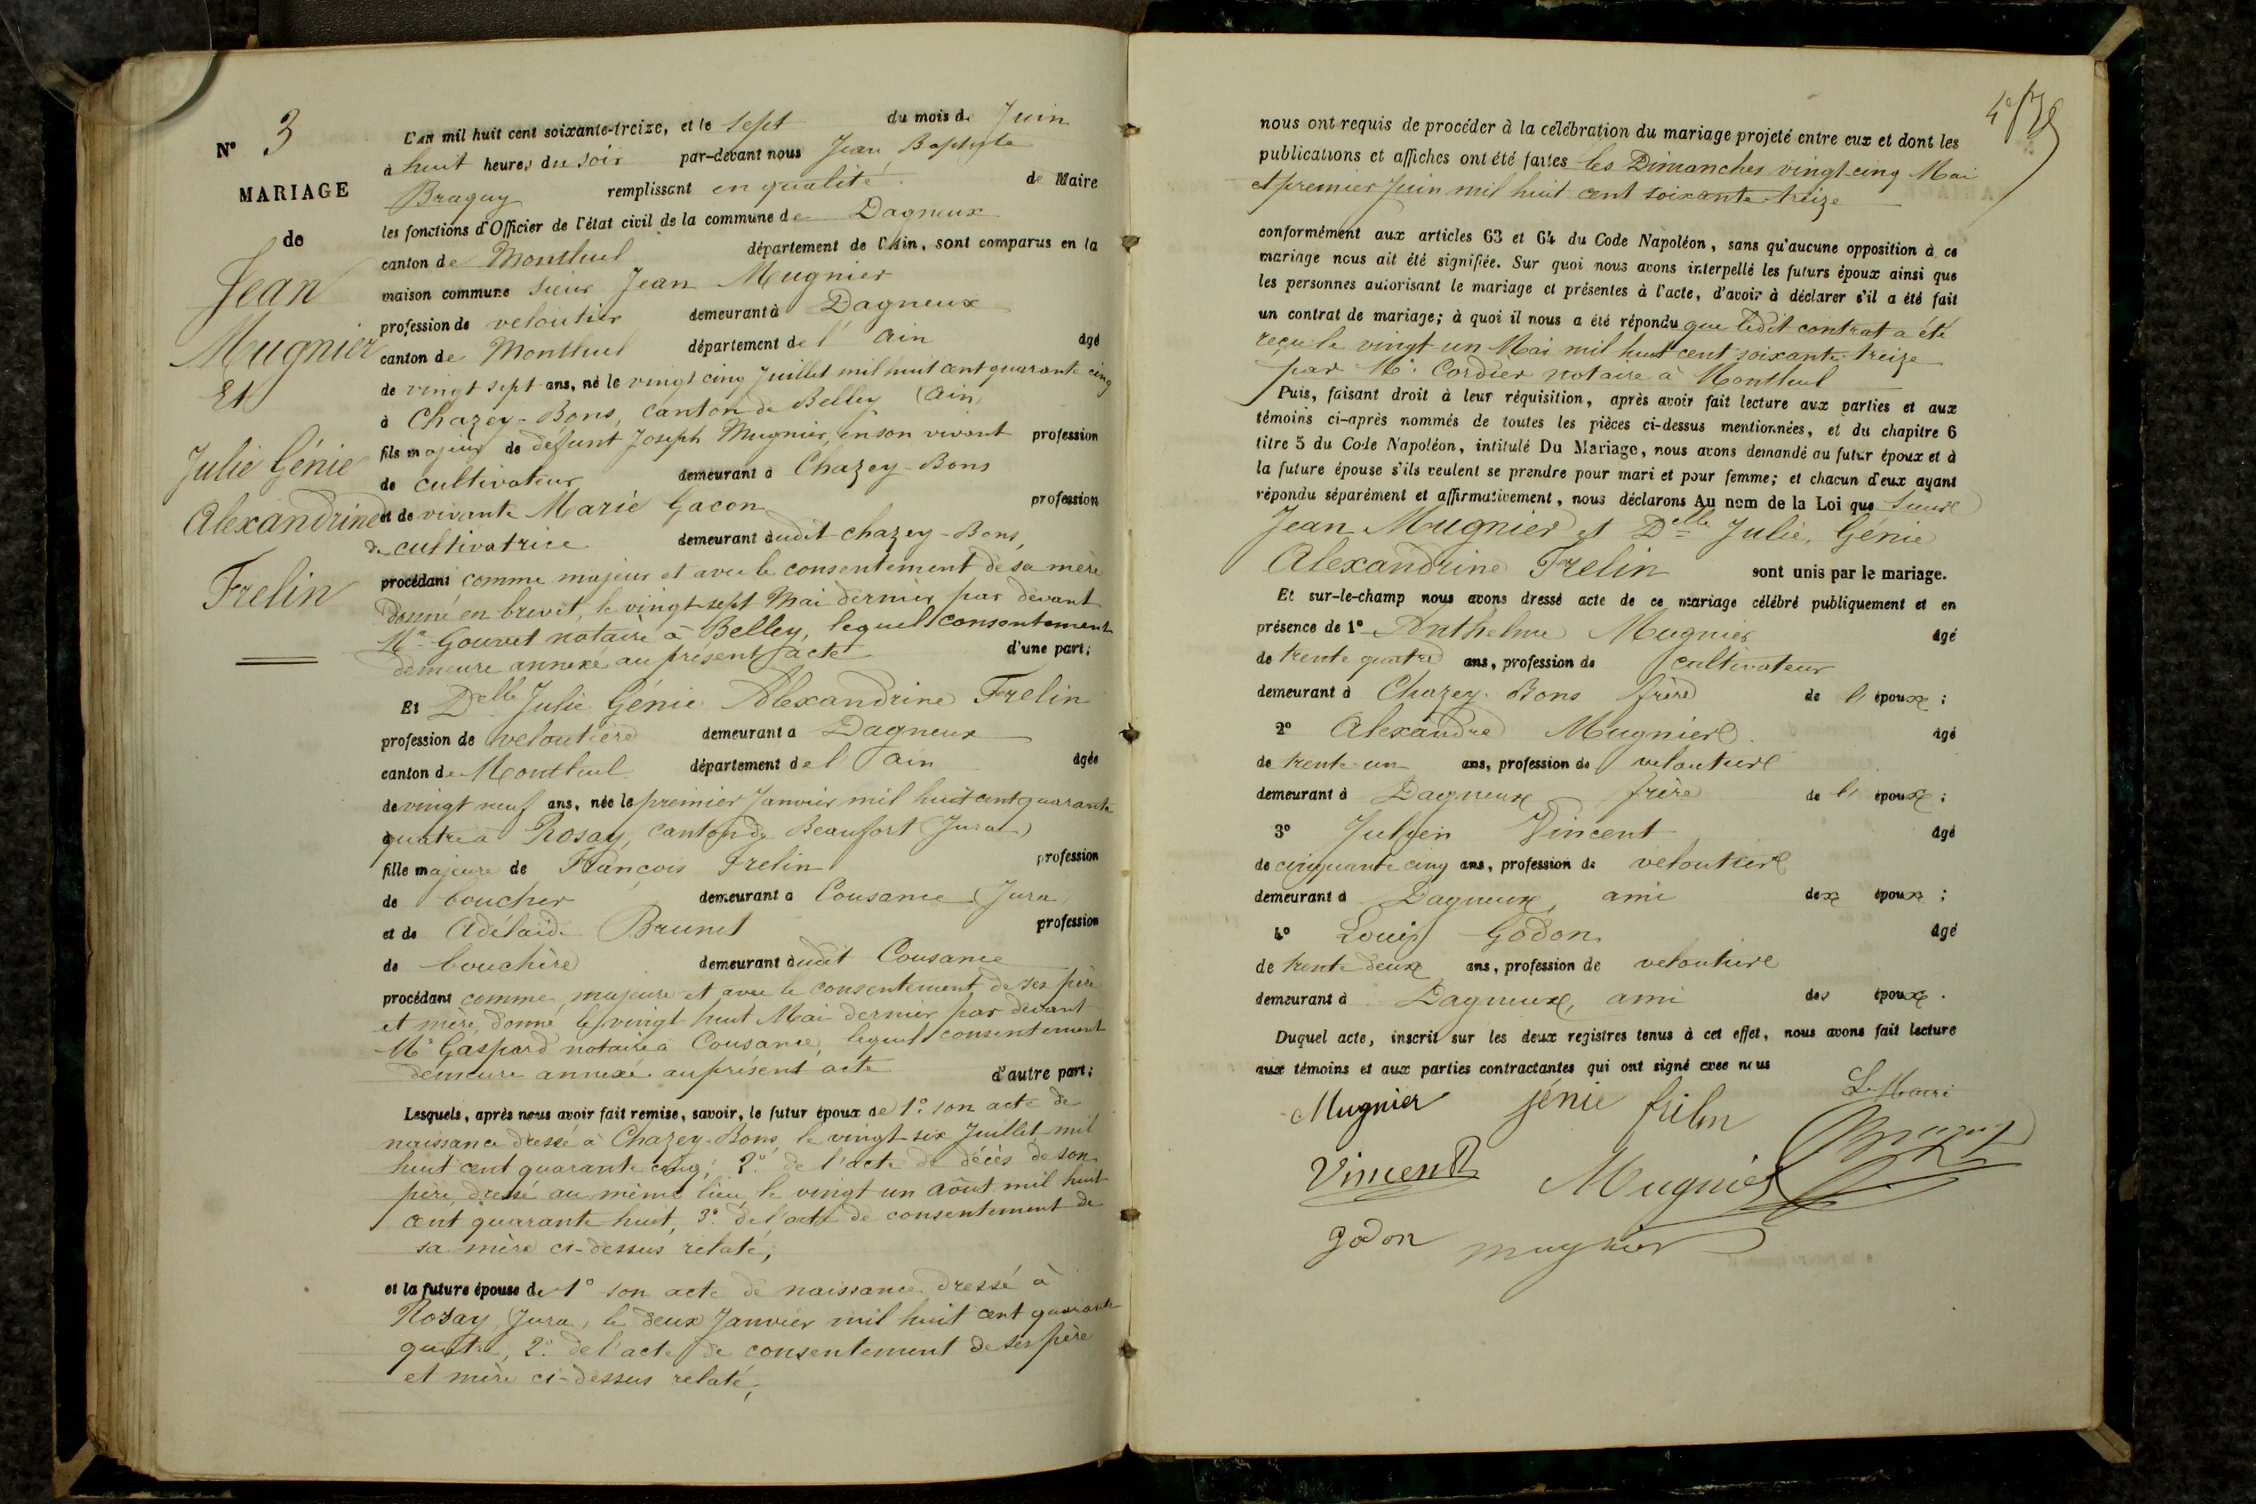 N° 3
MARIAGE
de
Jean
Mugnier
Et
Julie Génie
Alexandrine
Frelin
L'an mil huit cent soixante-treize, et le sept du mois de Juin
à huit heures du soir par-devant nous Jean Baptiste
Braguy remplissant en qualité de Maire
les fonctions d'Officier de l'état civil de la commune de Dagneux
canton de Montluel département de l'Ain, sont comparus en la
maison commune sieur Jean Mugnier
profession de veloutier demeurant à Dagneux
canton de Montluel département de l' Ain âgé
de vingt sept ans, né le vingt cinq Juillet mil huit cent quarante cinq
à Chazey-Bons, canton de Belley (Ain)
fils majeur de defunt Joseph Mugnier, en son vivant profession
de cultivateur demeurant à Chazey-Bons
et de vivante Marie Gacon profession
de cultivatrice demeurant audit Chazey-Bons,
procédant comme majeur et avec le consentement de sa mère
donné en brevet, le vingt-sept Mai dernier par devant
Me Gouvet notaire à Belley, lequel consentement
demeure annexé au présent acte d'une part;
Et Delle Julie Génie Alexandrine Frelin
profession de veloutière demeurant à Dagneux
canton de Montluel département de l' Ain âgée
de vingt neuf ans, née le premier Janvier mil huit cent quarante
quatre à Rosay, canton de Beaufort (Jura)
fille majeure de François Frelin profession
de boucher demeurant à Cousance (Jura)
et de Adélaïde Brunet profession
de bouchère demeurant audit Cousance
procédant comme majeure et avec le consentement de ses père
et mère, donné le vingt huit Mai dernier par devant
Me Gaspard notaire à Cousance, lequel consentement
demeure annexé au présent acte d'autre part;
Lesquels, après nous avoir fait remise, savoir, le futur époux de 1° son acte de
naissance dressé à Chazey-Bons, le vingt-six Juillet mil
huit cent quarante cinq; 2° de l'acte de décès de son
père, dressé au même lieu, le vingt un août mil huit
cent quarante huit, 3° de l'acte de consentement de
sa mère ci-dessus relaté,
et la future épouse de 1° son acte de naissance dressé à
Rosay, Jura, le deux Janvier mil huit cent quarante
quatre, 2° de l'acte de consentement de ses père
et mère ci-dessus relaté,
nous ont requis de procéder à la célébration du mariage projeté entre eux et dont les
publications et affiches ont été faites les Dimanches vingt-cinq Mai
et premier Juin mil huit cent soixante-treize
conformément aux articles 63 et 64 du Code Napoléon, sans qu'aucune opposition à ce
mariage nous ait été signifiée. Sur quoi nous avons interpellé les futurs époux ainsi que
les personnes autorisant le mariage et présentes à l'acte, d'avoir à déclarer s'il a été fait
un contrat de mariage; à quoi il nous a été répondu que ledit contrat a été
reçu le vingt-un Mai mil huit cent soixante-treize
par Me Cordier notaire à Montluel
Puis, faisant droit à leur réquisition, après avoir fait lecture aux parties et aux
témoins ci-après nommés de toutes les pièces ci-dessus mentionnées, et du chapitre 6
titre 5 du Code Napoléon, intitulé Du Mariage, nous avons demandé au futur époux et à
la future épouse s'ils veulent se prendre pour mari et pour femme; et chacun d'eux ayant
répondu séparément et affirmativement, nous déclarons Au nom de la Loi que Sieur
Jean Mugnier et Delle Julie, Génie
Alexandrine Frelin sont unis par le mariage.
Et sur-le-champ nous avons dressé acte de ce mariage célébré publiquement et en
présence de 1° Anthelme Mugnier âgé
de trente quatre ans, profession de cultivateur
demeurant à Chazey-Bons frère de l' époux;
2° Alexandre Mugnier âgé
de trente-un ans, profession de veloutier
demeurant à Dagneux frère de l' époux;
3° Julien Vincent âgé
de cinquante cinq ans, profession de veloutier
demeurant à Dagneux, ami des époux;
4° Louis Godon âgé
de trente deux ans, profession de veloutier
demeurant à Dagneux, ami des époux.
Duquel acte, inscrit sur les deux registres tenus à cet effet, nous avons fait lecture
aux témoins et aux parties contractantes qui ont signé avec nous
Mugnier jénie frelin Le Maire
Vincent Mugnier Braguy
godon mugnier